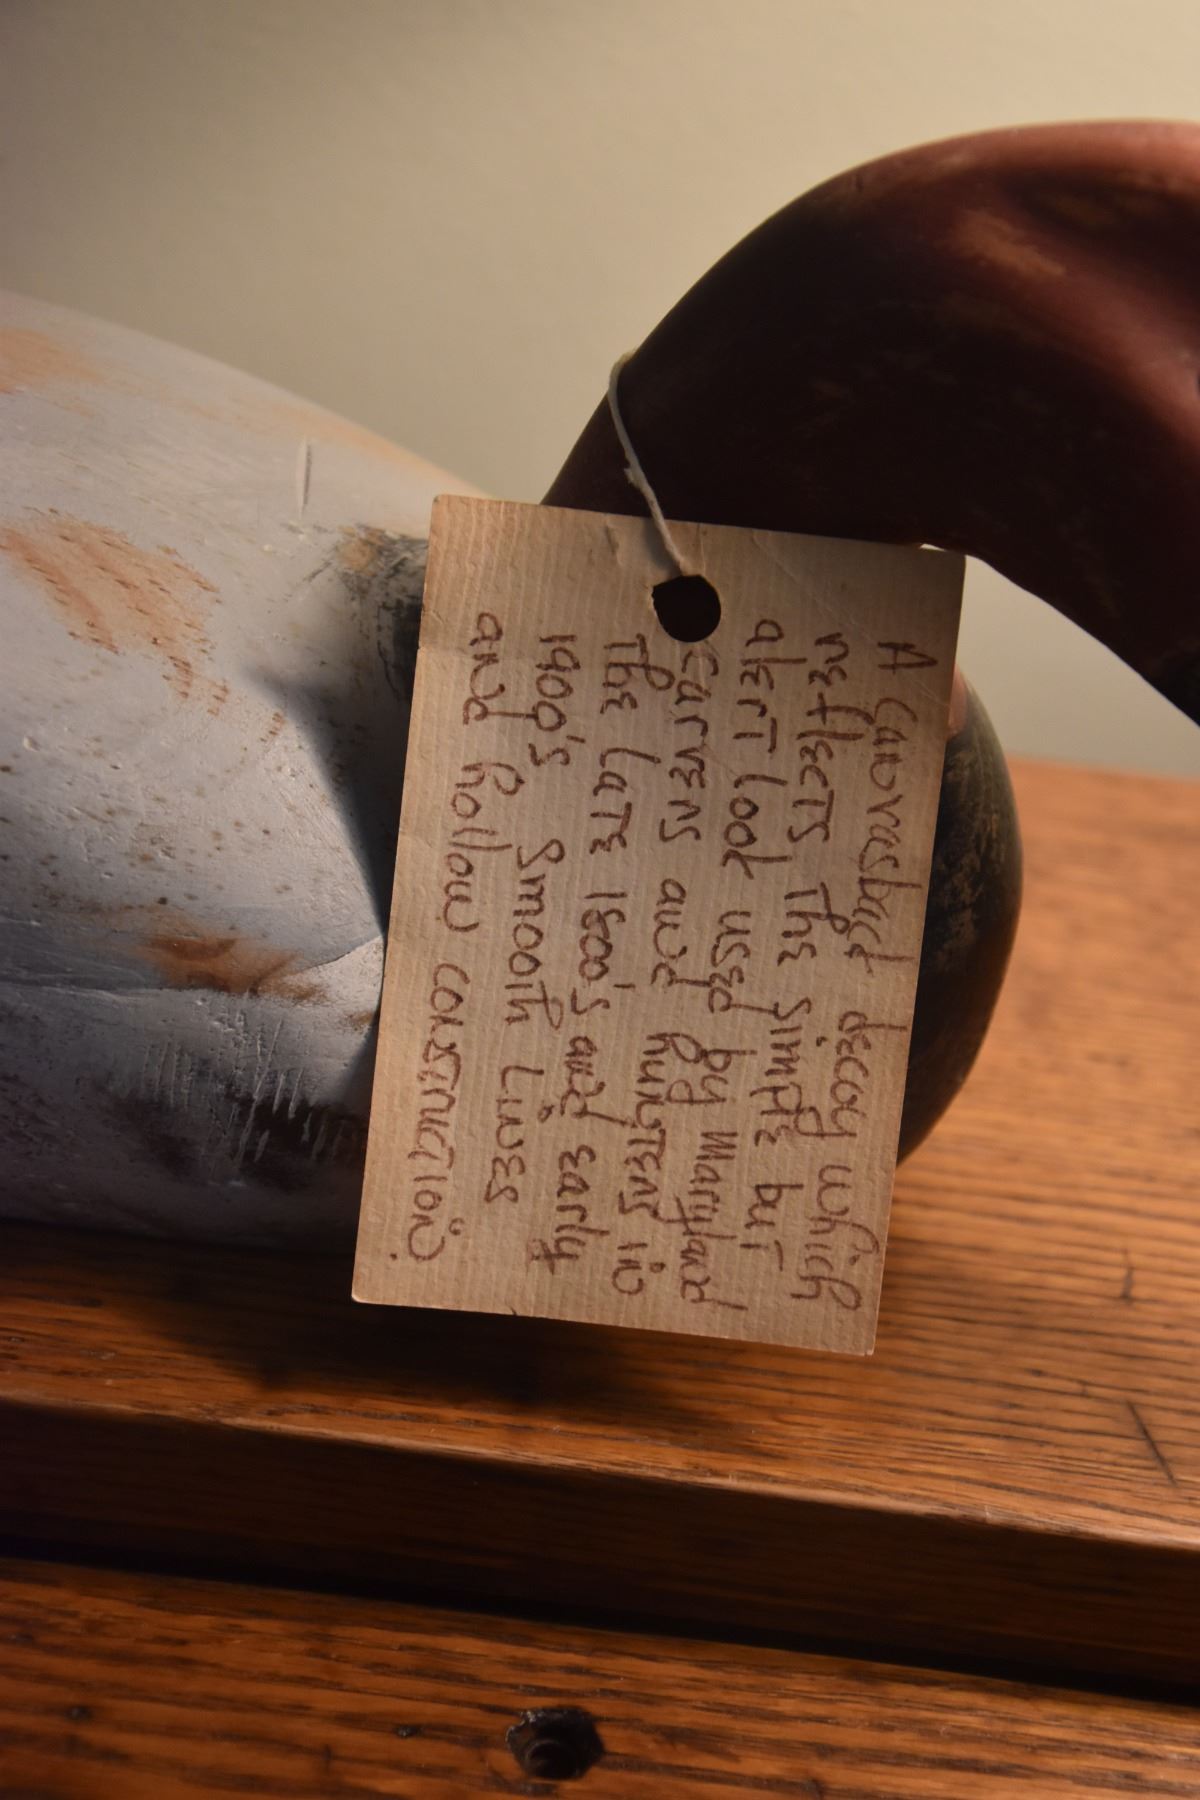 A Canvasback decoy which
reflects the simple but
alert look used by Maryland
carvers and hunters in
the late 1800's and early
1900's Smooth Lines
and hollow construction.